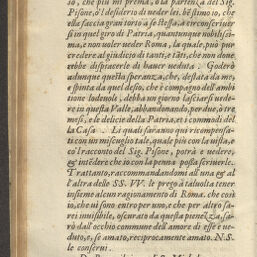 io, che più mi prema, o la partenza del Sig.
Pisone, o'l desiderio di veder lei. Bẽ stimo io, che
ella faccia gran torto a se stessa, a circonscriuer
si in quel giro di Patria, quantunque nobilissi-
ma, e non uoler ueder Roma, la quale, può pur
credere al giudicio di tanti, e tãti, che non deue
ebbe dispiacerle di hauer ueduta. Goderò
adunque questa speranza, che, destata da me,
e spinta da quel desio, che è compagno dell'am
bitione lodeuole, debba un giorno lasciarsi urde-
re in questa Valle, abbandonando, per due, o tre
mesi, e le delicie della Patria, et i commodi del
la Casa. Li quali saranno qui ricompensa-
ti con un miscuglio tale, quale più con la uista, e
co'l racconto del Sig. Pisone, potrà e uedere,
& intẽdere che io con la penna possa scriuerle.
Trattanto, raccommandandomi all'una & al
l'altra delle SS. VV. le prego à taluolta tener
insieme alcun ragionamento di Roma. che così
io, che ui sono entro per uno, e che per altro sa-
rei inuisibile, oscurato da questa pienezza, sa-
rò dall'occhio commune dell'amore di esse e ue-
duto, e, se amato, reciprocamente amato. N.S.
le conserui.